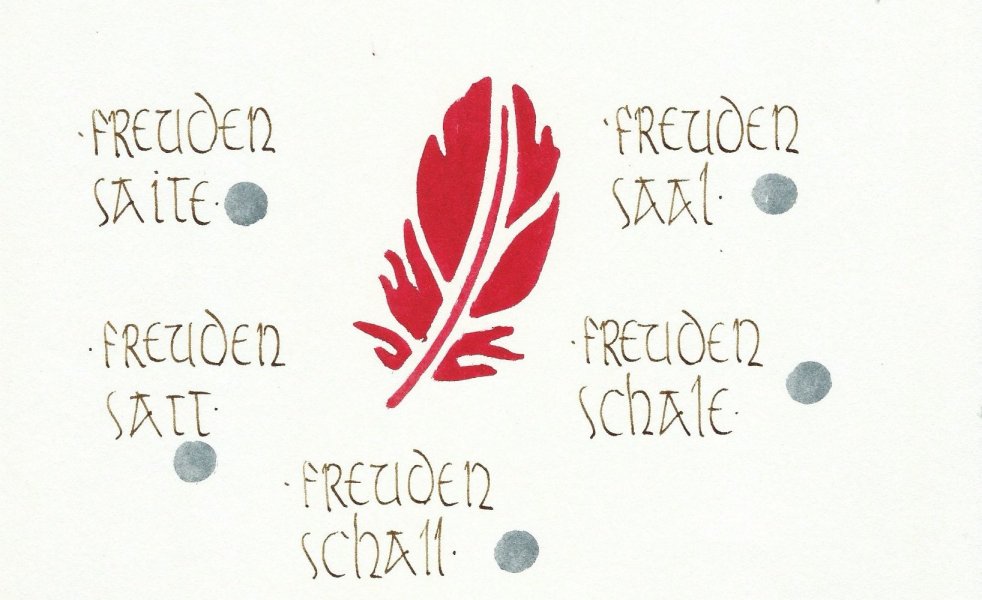 ·FREUDEN
SAITE·
·FREUDEN
SAAL·
·FREUDEN
SATT·
·FREUDEN
SCHALE·
·FREUDEN
SCHALL·